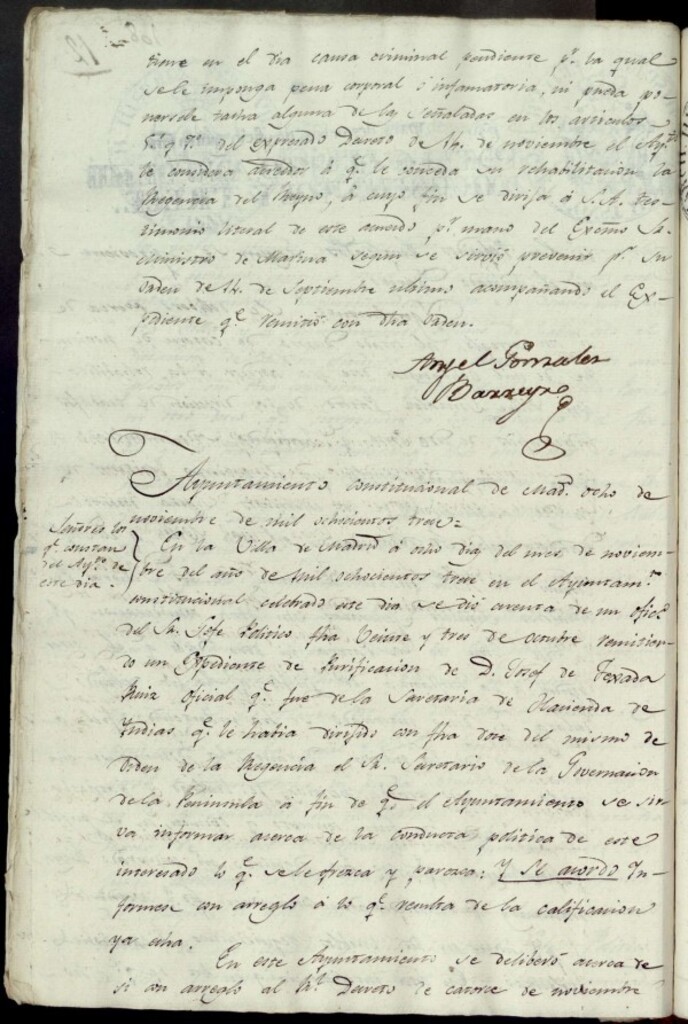 tiene en el dia causa criminal pendiente pr. la qual
se le imponga pena corporal ó infamatoria, ni pueda po-
nersele tacha alguna de las señaladas en los articulos
del expresado Decreto de 14. de noviembre el Aymto.
le considera acrehedor á q.e se conceda su rehabilitacion la
Regencia del Reyno, á cuyo fin se dirija á S. A. tes-
timonio literal de este acuerdo pr. mano del Exc̃mo Sr.
Ministro de Marina segun se sirvió prevenir pr. su
orden de 14. de Septiembre ultimo acompañando el Ex-
pediente q.e remitió con dha orden.
Angel Gonzalez
Barreyro
Ayuntamiento constitucional de Mad.d ocho de
noviembre de mil ochocientos trece=
Señores los
q.e constan
del Ayto. de
este dia.
En la Villa de Madrid á ocho dias del mes de noviem-
bre del año de mil ochocientos trece en el Ayuntam.to
constitucional celebrado este dia se dió cuenta de un oficio
del Sr. Gefe Politico fha Veinte y tres de octubre remitien-
do un Expediente de Purificacion de D. Josef de Texada
Ruiz oficial q.e fue de la Secretaria de Hacienda de
Indias q.e le habia dirijido con fha doce del mismo de
orden de la Regencia el Sr. Secretario de la Governacion
de la Peninsula á fin de q.e el Ayuntamiento se sir-
va informar acerca de la conducta politica de este
interesado lo q.e se le ofrezca y parezca: Y se acordó In-
formen con arreglo á lo q.e resulta de la calificacion
ya dha.
En este Ayuntamiento se deliberó acerca de
si con arreglo al Rl. Decreto de catorce de noviembre